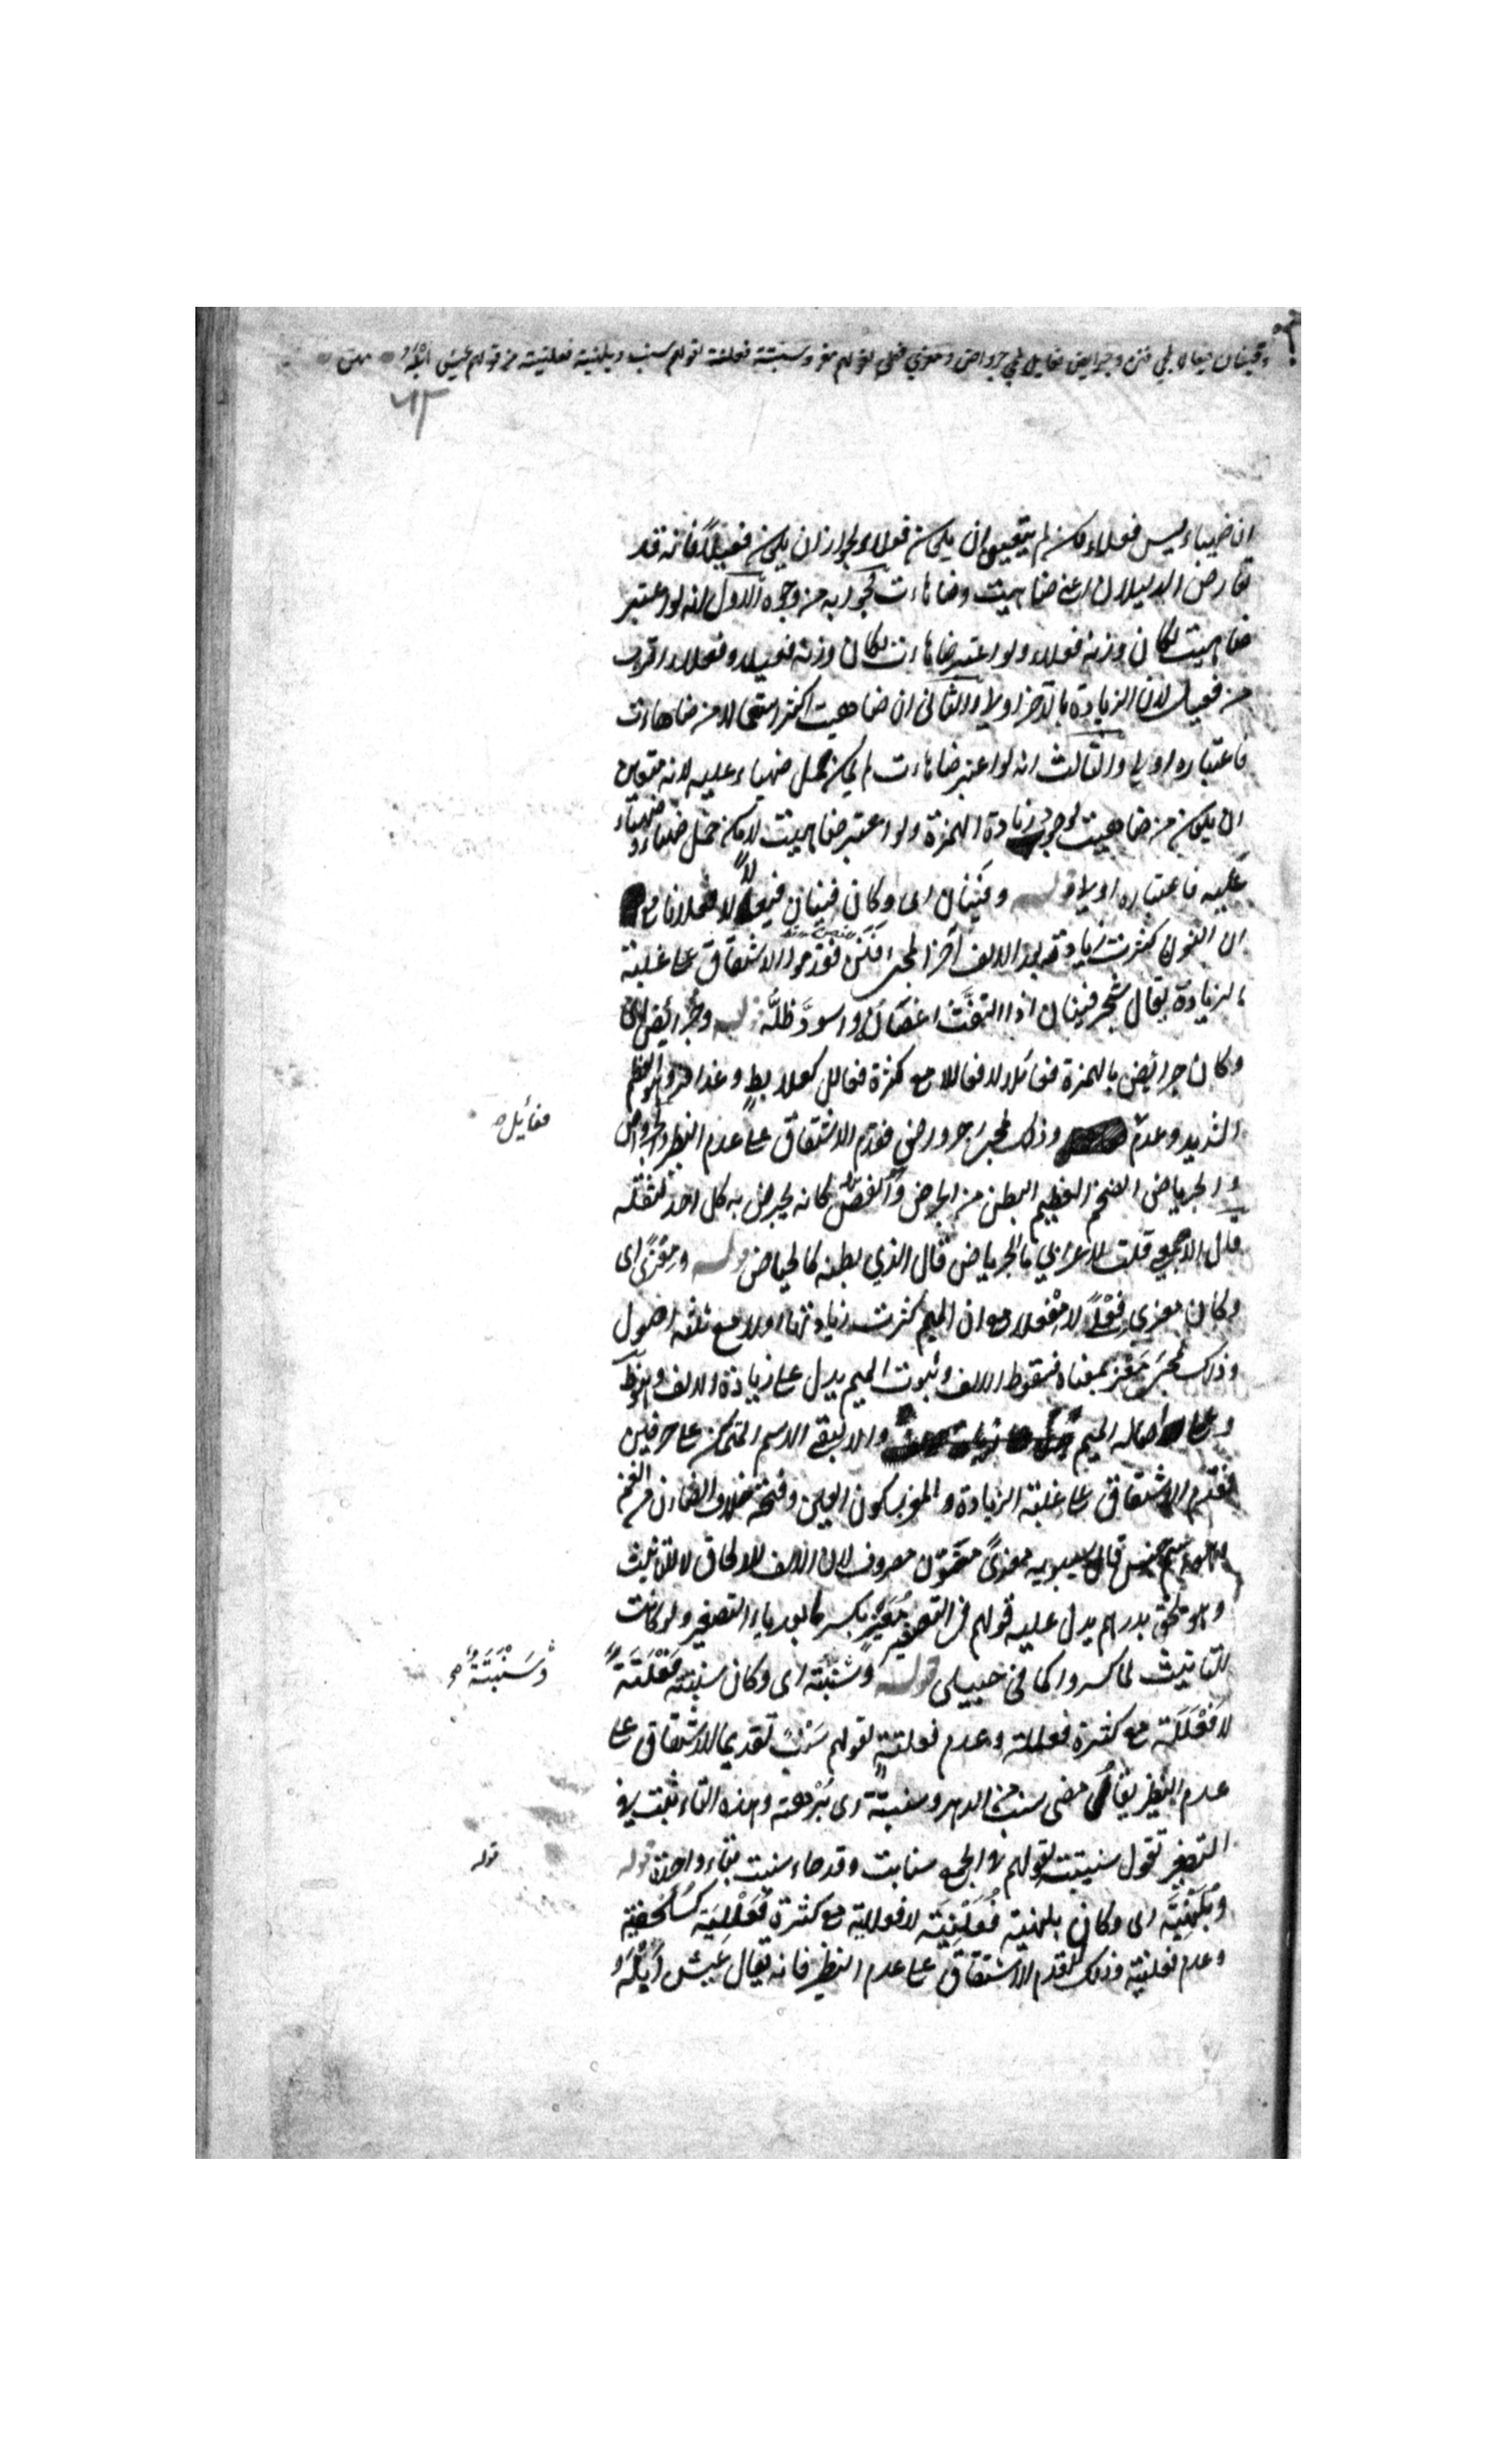 وفينان فيعال لمجئ فنن وجرايض فعايل لمجئ جرواض ومعزى فعلى لقولهم معز وسنبتة فعلتة لقولهم سنب وبلهنية فعلنية من قولهم عيش ابله متن
ان ضهياء ليس فعلاء ولكن لم يتعين ان يكون فعلاء لجواز ان يكون فعيلا فانه قد
تعارض الدليلان اعنى ضاهيت وضاهات فجوابه من وجوه الاول انه لو اعتبر
ضاهيت لكان وزنه فعلاء ولو اعتبر ضاهات لكان وزنه فعيلا وفعلاء اقرب
من فعيل لان الزيادة بالاخر اولى والثانى ان ضاهيت اكثر استعمالا من ضاهات
فاعتباره اولى والثالث انه لو اعتبر ضاهات لم يمكن حمل ضهياء عليه لانه متعين
ان يكون من ضاهيت لوجوب زيادة الهمزة ولو اعتبر ضاهيت لامكن حمل ضهياء وضهياء
عليه فاعتباره اولى قوله وفينان اى وكان فينان فيعالا لا فعلانا مع
ان النون كثرت زيادته بعد الالف آخرا لمجئ فنن فقدموا الاشتقاق على غلبة
الزيادة يقال شجر فينان اذا التفت اغصانه واسود ظله قوله وجرائض اى
وكان جرائض بالهمزة فعائلا لا فعاللا مع كثرة فعالل كعلابط وعذافر وهو العظيم
الشديد وعدم وذلك لمجئ جرواض فقدم الاشتقاق على عدم النظير والجرواض
والجرياض الضخم العظيم البطن من الجرض والغصص كانه يجرض به كل احد لثقله
قال الاصمعى قلت لاعرابي ما الجرياض قال الذي بطنه كالحياض قوله ومعزى اى
وكان معزى فعلى لا مفعلا مع ان الميم كثرت زيادتها اولا مع ثلثة اصول
وذلك لمجئ معز بمعناه فسقوط الالف وثبوت الميم يدل على زيادة الالف
وعلى اصالة الميم والا لبقى الاسم المتمكن على حرفين
فقدم الاشتقاق على غلبة الزيادة والمعز بسكون العين وفتحه خلاف الضان من الغنم
وهو اسم جنس قال سيبويه معزى منون مصروف لان الالف للالحاق لا للتانيث
وهو ملحق بدرهم يدل عليه قولهم فى التصغير معيز بكسر ما بعد ياء التصغير ولو كانت
للتانيث لما كسروا كما فى حبيلى قوله وسنبتة اى وكان سنبتة فعلتة
لا فعللة مع كثرة فعللة وعدم فعلتة لقولهم سنب تقديما للاشتقاق على
عدم النظير يقال مضى سنب من الدهر وسنبتة اى برهة وهذه التاء تثبت فى
التصغير تقول سنيبتة لقولهم فى الجمع سنابت وقد جاء سنبت بتاء واحدة قوله
وبلهنية اى وكان بلهنية فعلنية لا فعللية مع كثرة فعللية كسلحفية
وعدم فعلنية وذلك لتقدم الاشتقاق على عدم النظير فانه يقال عيش ابله
فعائل صح
وسنبتة صح
قوله